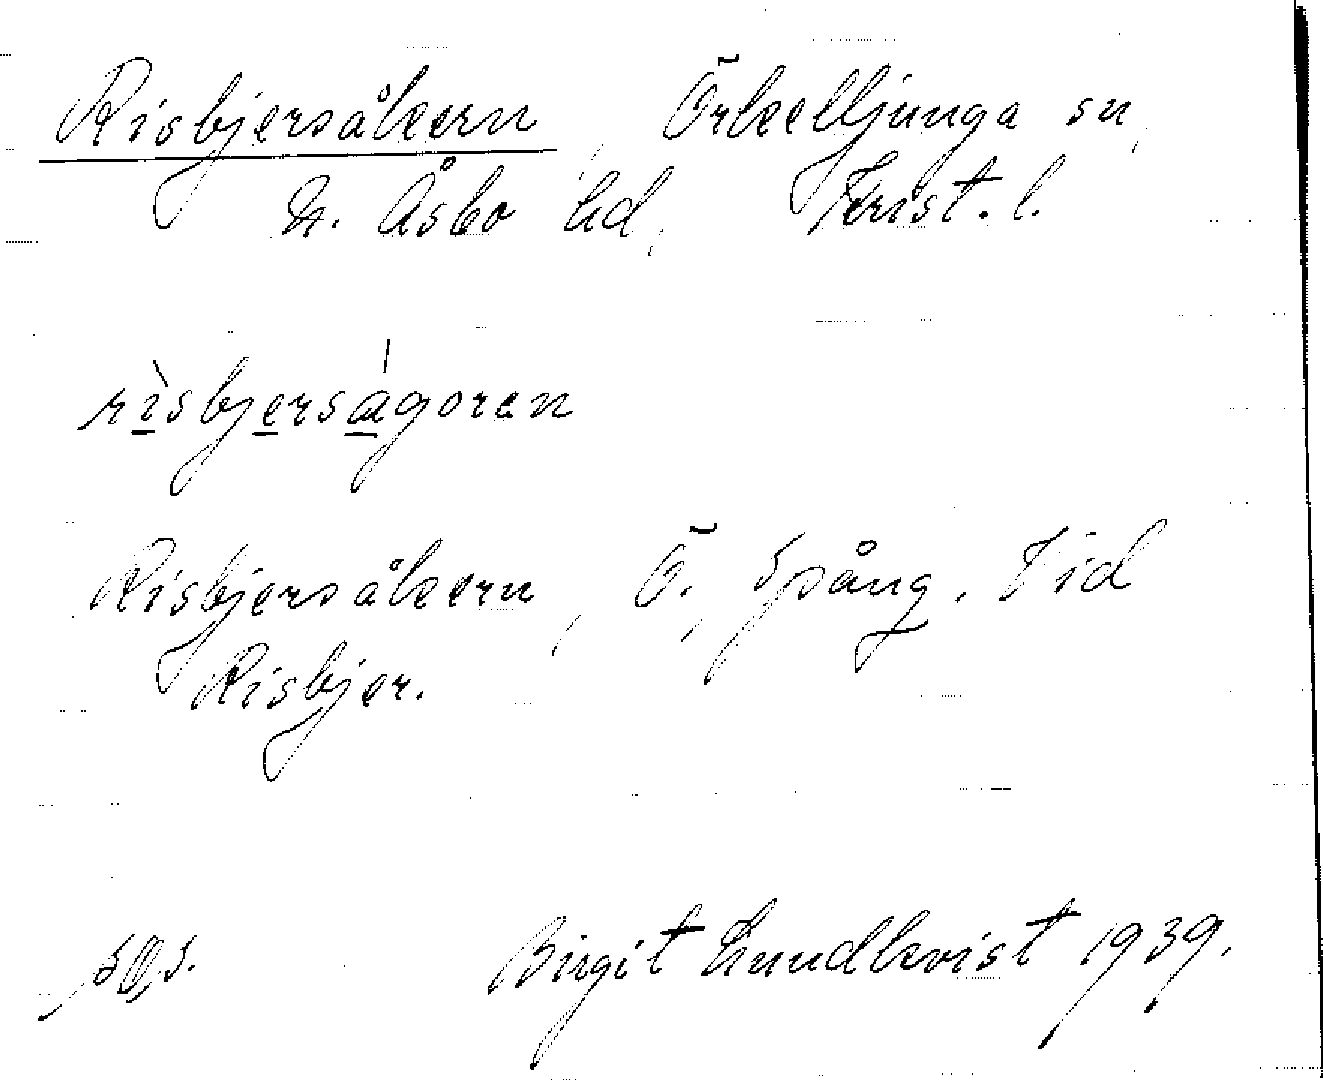 Risbjersåkern, Örkelljunga sn,
N. Åsbo hd, Krist. l.
rìsbjerságoren
Risbjersåkern, Ö. Spång. Vid
Risbjer.
Birgit Lundkvist 1939.